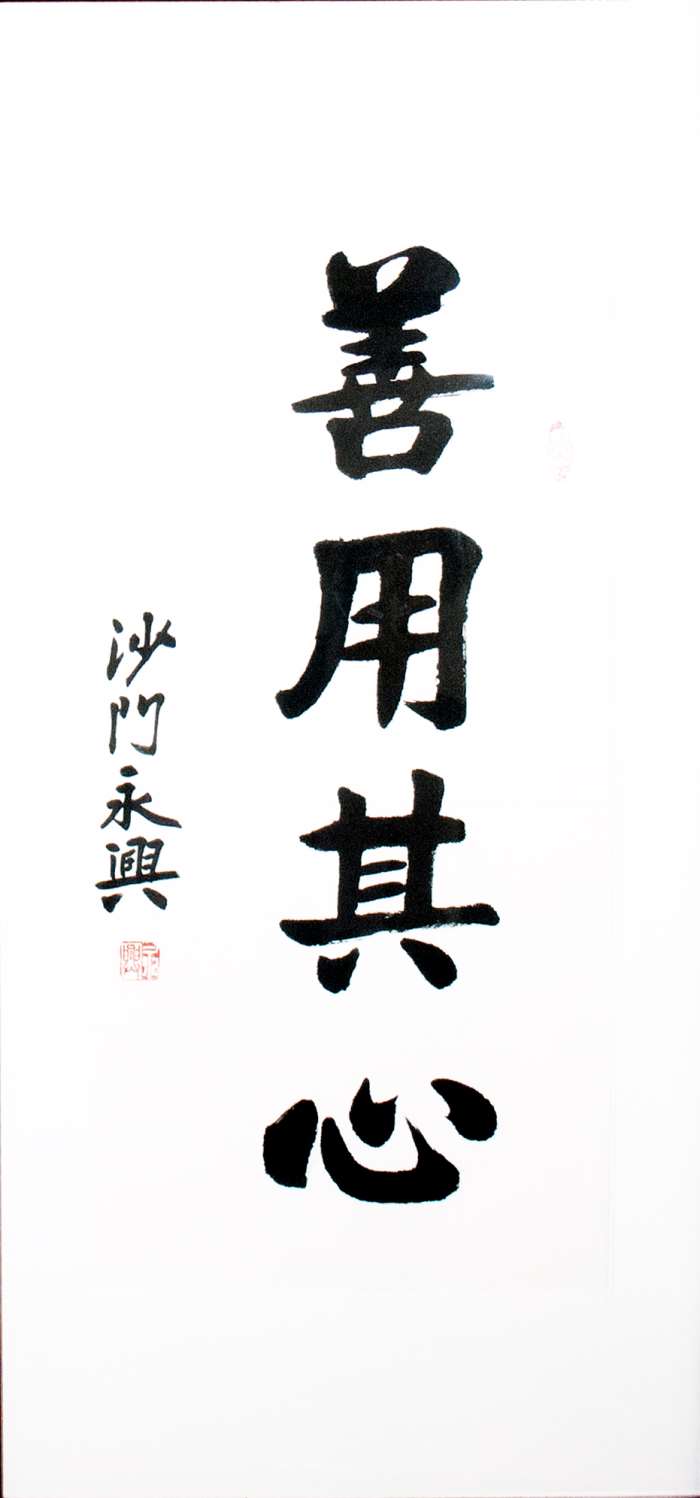 善用其心
沙門永興